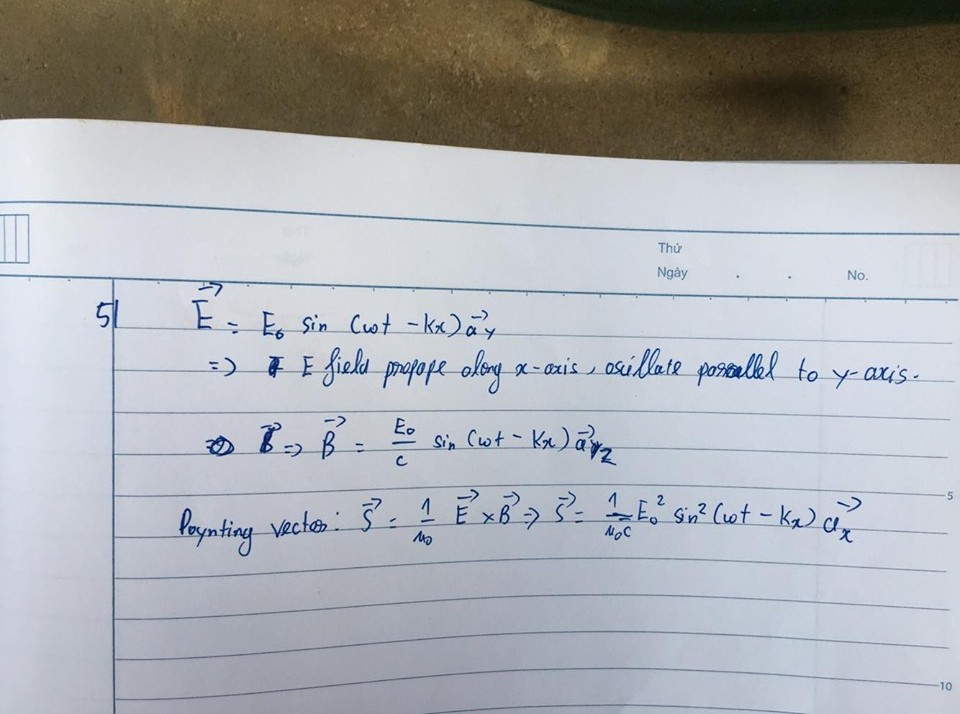 Thứ
Ngày . . No.
5| E⃗ = E₀ sin (ωt - kx) a⃗y
=> E field propape along x-axis, oscillate parallel to y-axis.
=> B⃗ = E₀/c sin (ωt - kx) a⃗z
5
Poynting vector: S⃗ = 1/μ₀ E⃗ x B⃗ => S⃗ = 1/μ₀c E₀² sin² (ωt - kx) a⃗x
10